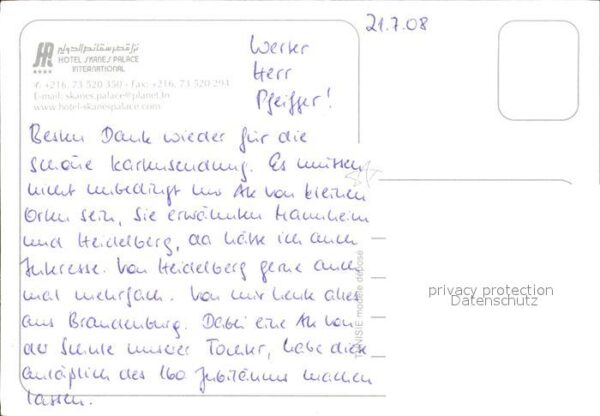 21.7.08
Werter
Herr
Pfeiffer!
HOTEL SKANES PALACE
INTERNATIONAL
+216. 73 520 350 - Fax: +216. 73 520 294
E-mail: skanes.palace@planet.tn
www.hotel-skanespalace.com
Besten Dank wieder für die
schöne Kartensendung. Es müssen
nicht unbedingt nur AK von kleinen
Orten sein, Sie erwähnten Mannheim
und Heidelberg, da hätte ich auch
Interesse. Von Heidelberg gerne auch
mal mehrfach. Von mir heute alles
aus Brandenburg. Dabei eine AK von
der Schule unserer Tochter, habe diese
anläßlich des 160 Jubiläums machen
lassen.
TUNISIE modèle déposé
privacy protection
Datenschutz